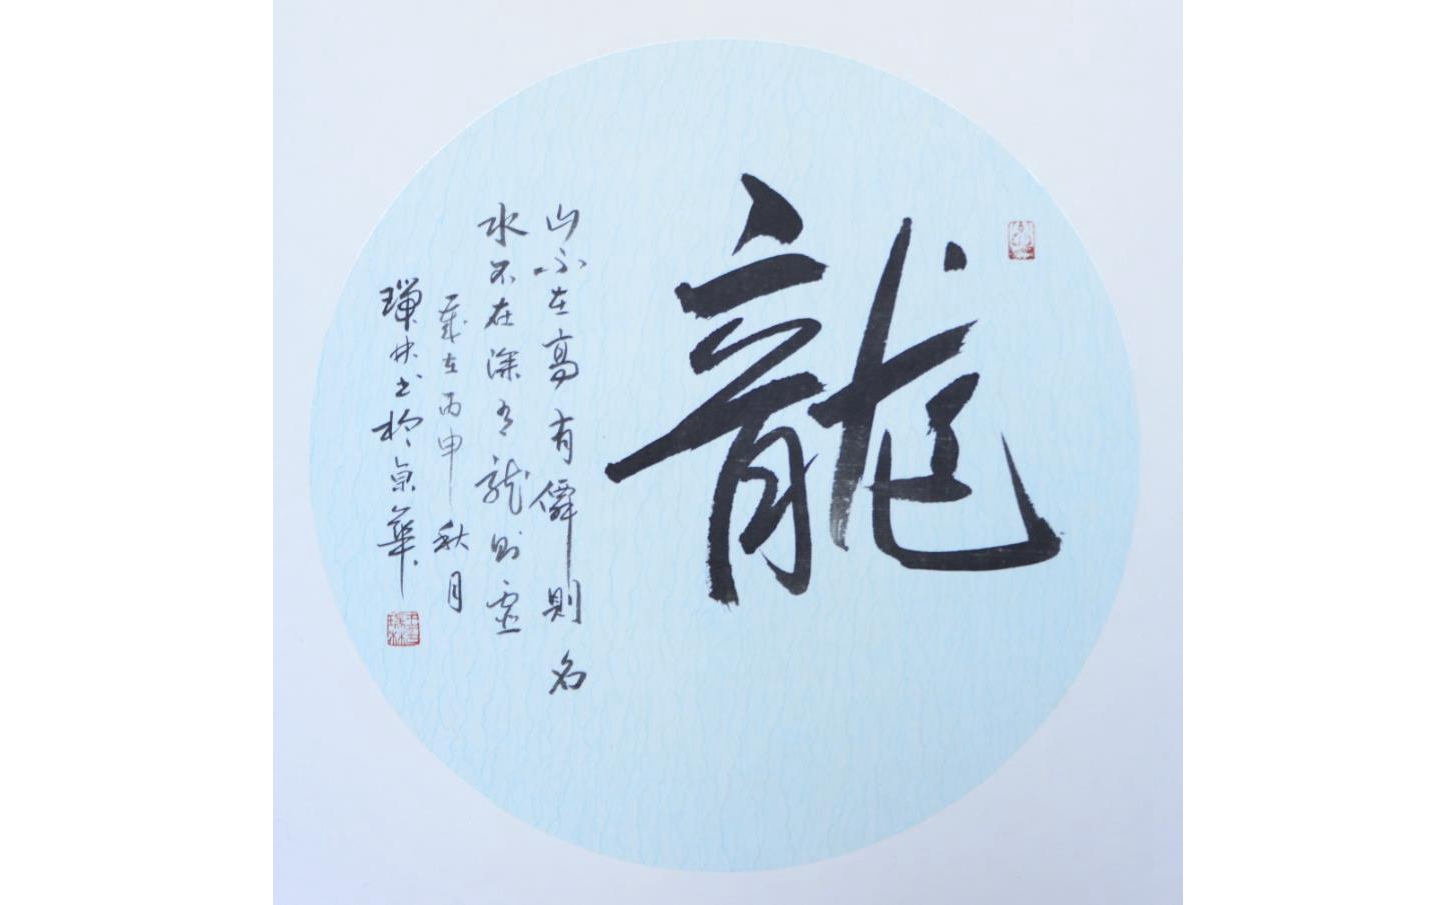 龍
山不在高有僊則名
水不在深有龍則靈
歲在丙申秋月
林書於京華